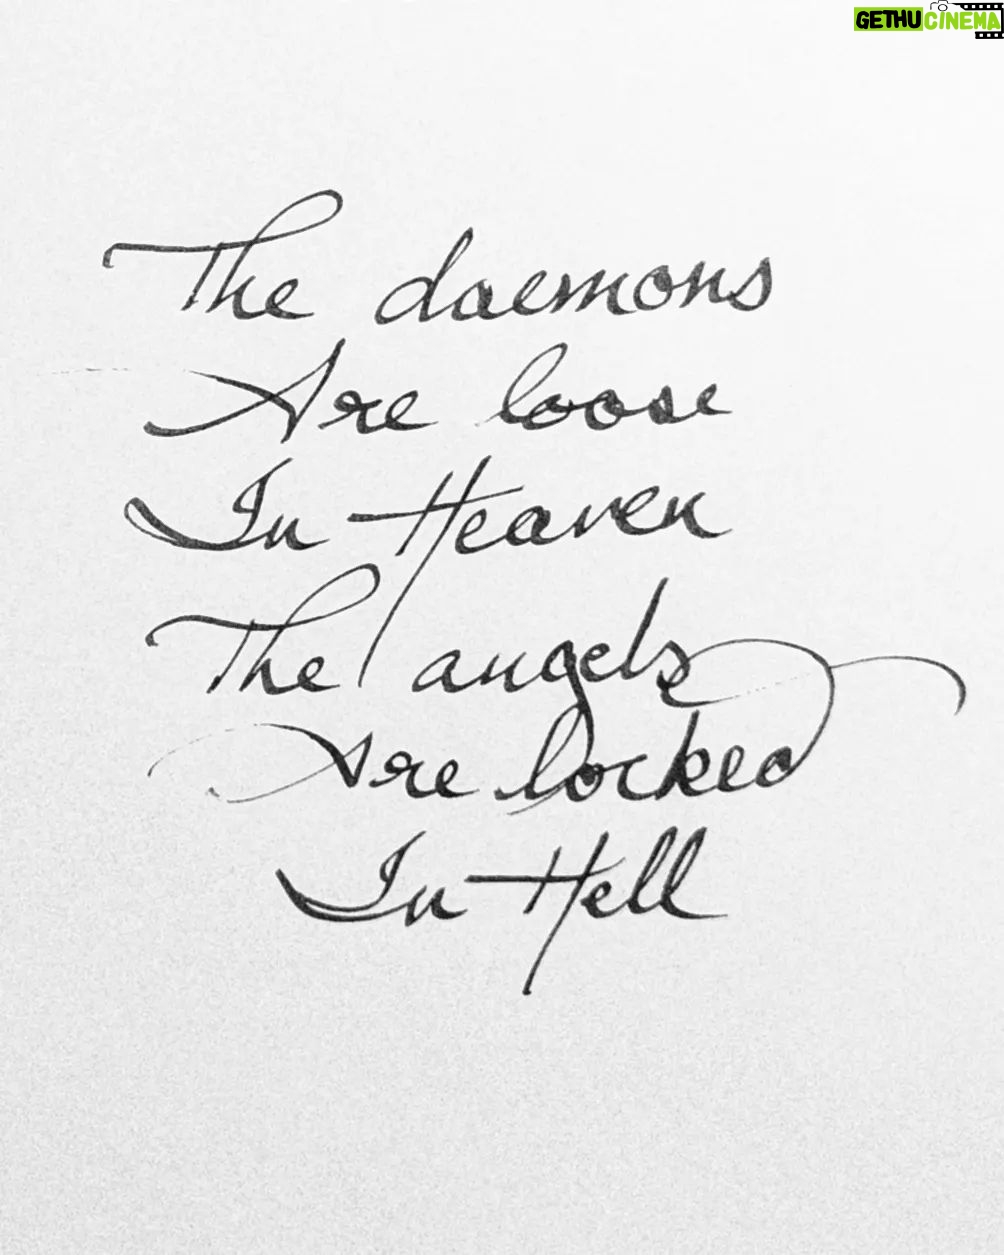 GETHUCINEMA
The daemons
Are loose
In Heaven
The angels
Are locked
In Hell